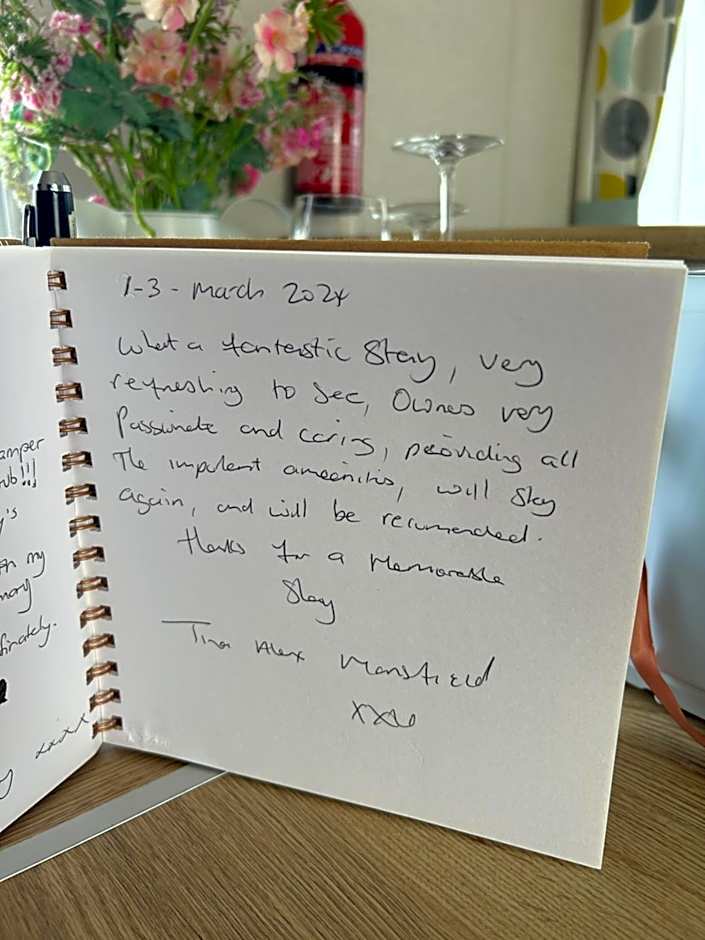 amper
ub!!!
y's
my
finately.
xxxx
1-3 - March 2024
What a fantastic Stay, very
refreshing to see, Owners very
Passionate and caring, peoviding all
The important ameenitis, will Stay
again, and will be recumended.
thanks for a Memorable
Stay
Tina Alex Mansfield